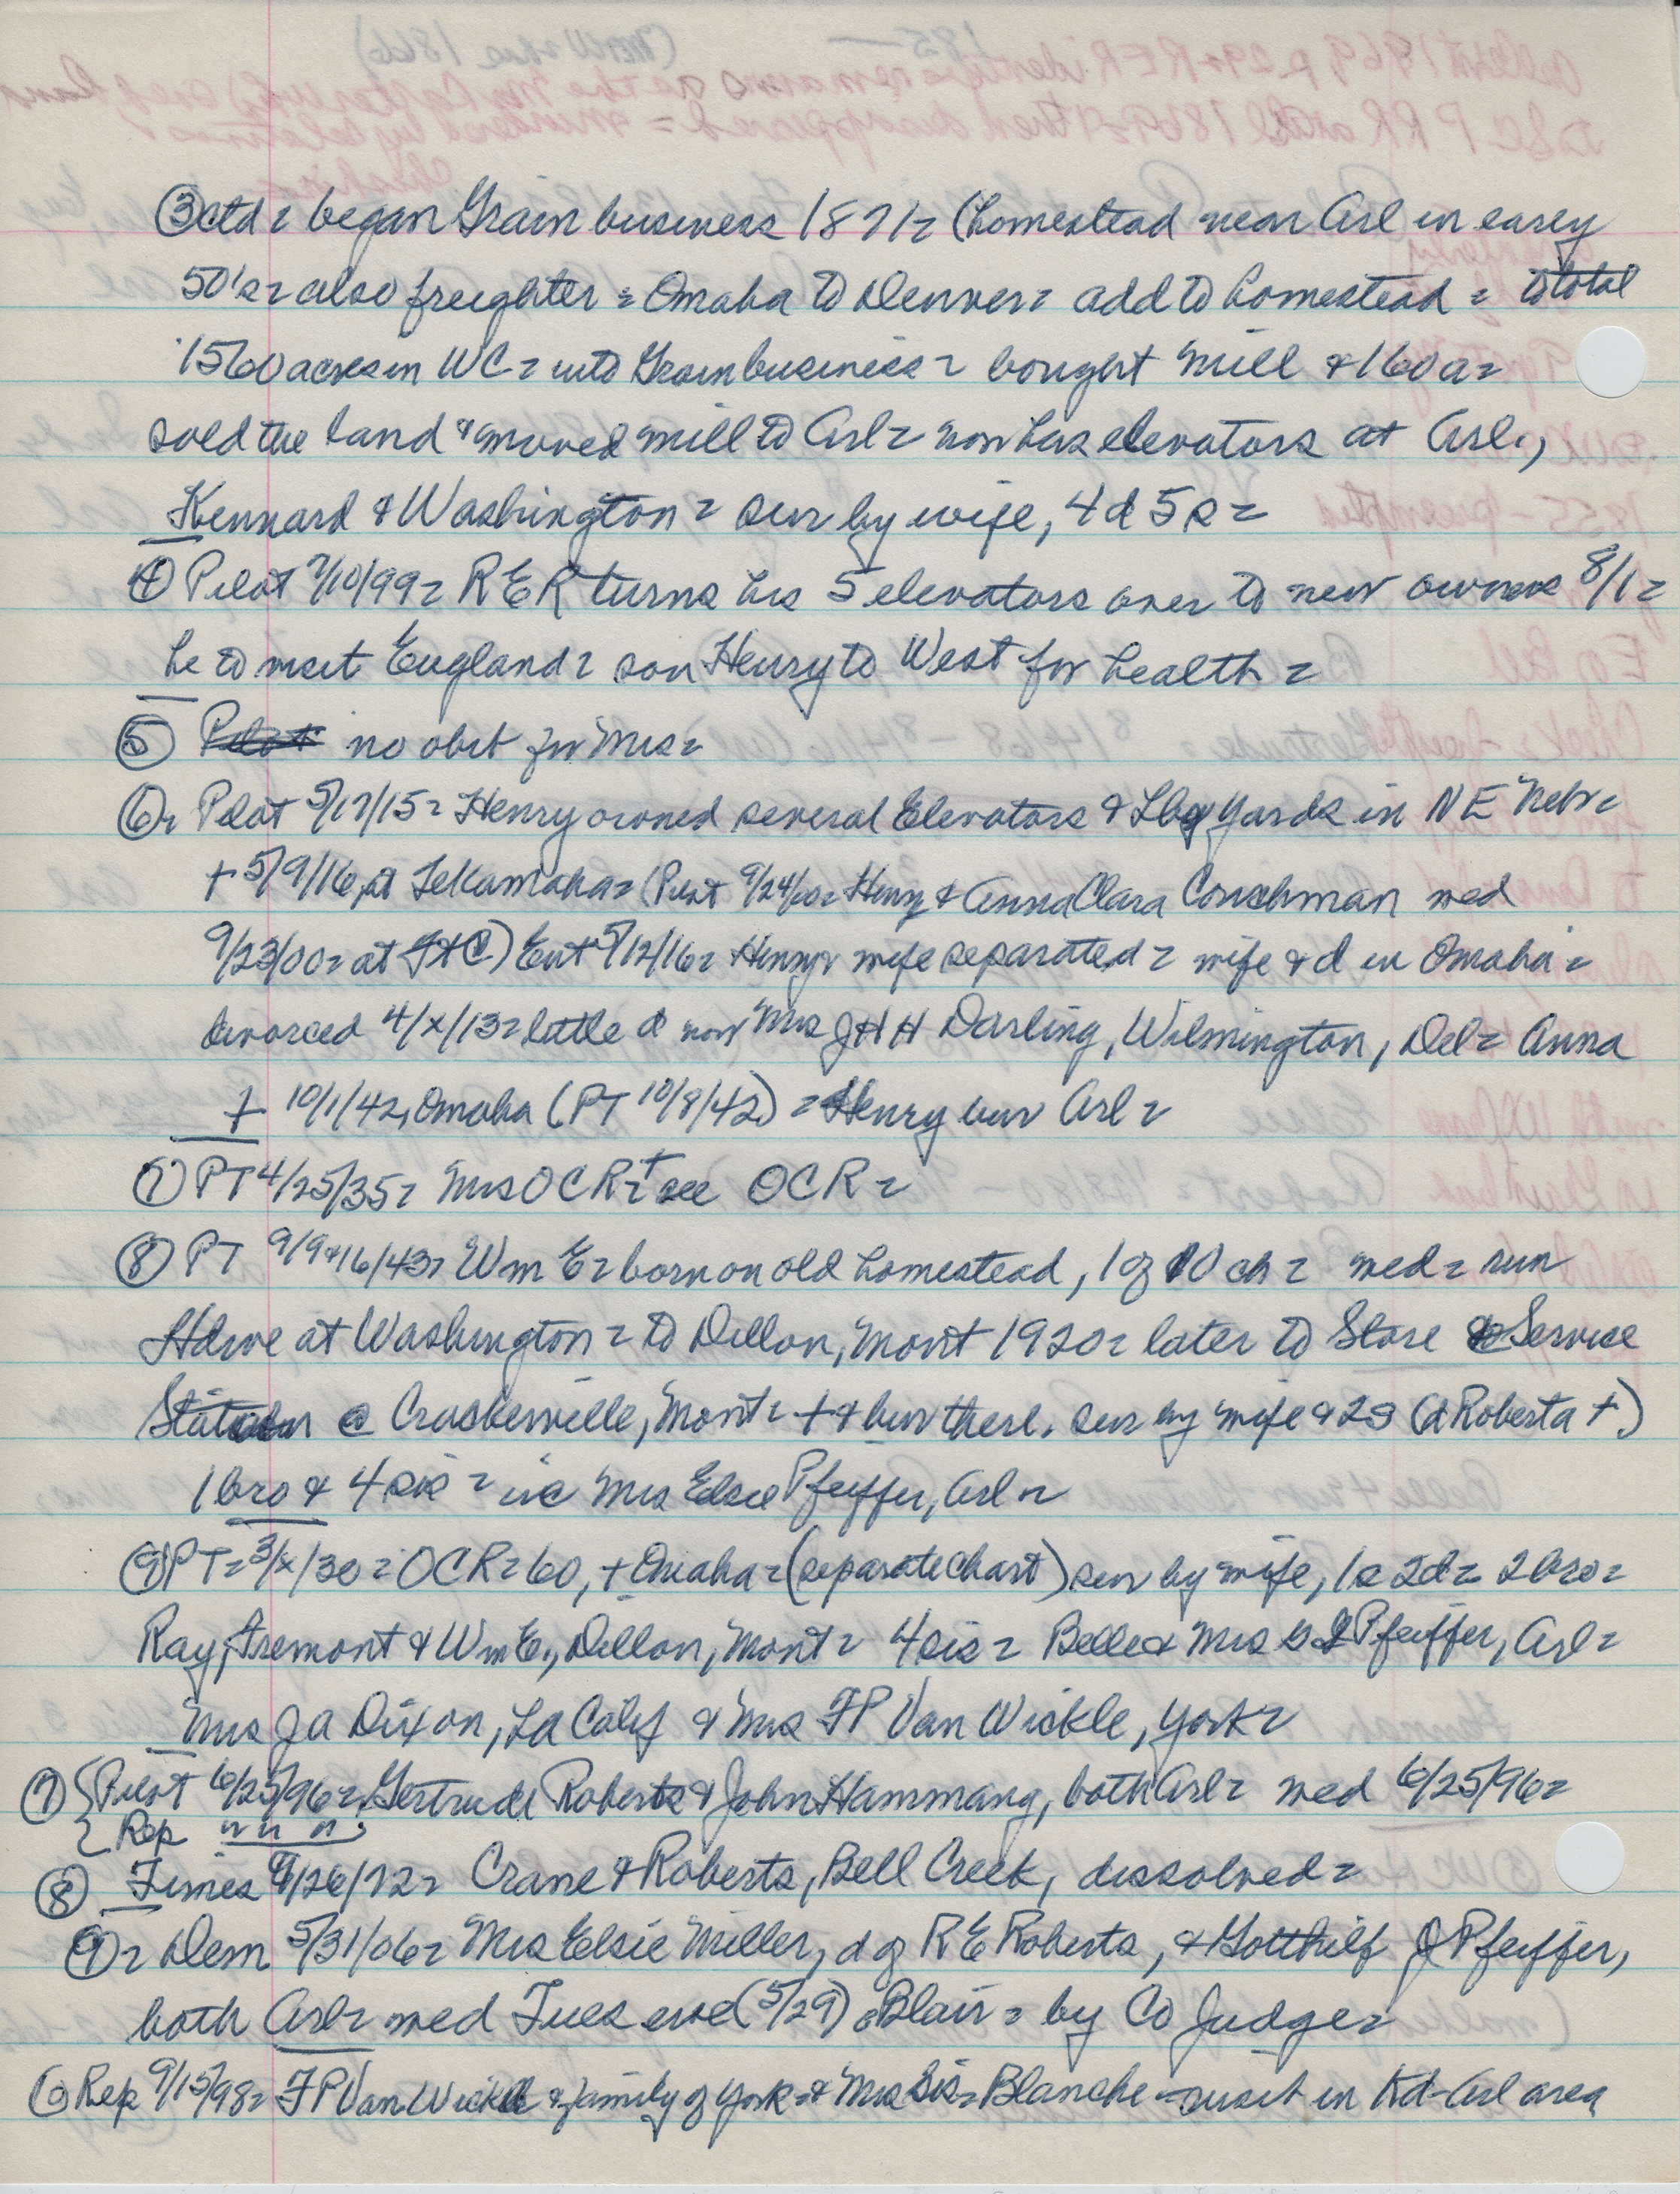 ③ctd = began Grain business 1871 = (homestead near Arl in early
50's = also freighter = Omaha to Denver = add to homestead = to total
1560 acres in WC = into Grain business = bought mill & 160 a =
sold the land & moved mill to Arl = now has elevators at Arl.,
Kennard & Washington = sur by wife, 4 d 5 s =
④ Pilot 7/10/99 = R E R turns his 5 elevators over to new owners 8/1 =
he to visit England = son Henry to West for health =
⑤ Pilot no obit for Mrs =
⑥ = Pilot 5/17/15 = Henry owned several Elevators & Lbg Yards in NE Nebr =
+ 5/9/16 at Tekamaha = (Pilot 9/24/00 = Henry & Anna Clara Couchman med
9/23/00 = at Ft C) Ent 5/12/16 = Henry & wife separated = wife & d in Omaha =
divorced 4/x/13 = little d now Mrs J H H Darling, Wilmington, Del = Anna
+ 10/1/42, Omaha (PT 10/8/42) = Henry bur Arl =
⑦ PT 4/25/35 = Mrs OCR + = see OCR =
⑧ PT 9/9 & 16/43 = Wm E = born on old homestead, 1 of 10 ch = med = run
Hdwe at Washington = to Dillon, Mont 1920 = later to Store & Service
Station @ Crackerville, Mont = + & bur there. sur by wife & 2 s (d Roberta +)
1 bro & 4 sis = inc Mrs Elsie Pfeiffer, Arl =
⑨ PT = 3/x/30 = OCR = 60, + Omaha = (separate chart) sur by wife, 1 s 2 d = 2 bro =
Ray, Fremont & Wm E., Dillon, Mont = 4 sis = Belle & Mrs G J Pfeiffer, Arl =
Mrs J A Dixon, La Calif & Mrs FP Van Wickle, York =
⑦ { Pilot 6/25/96 = Gertrude Roberts & John Hammang, both Arl = med 6/25/96 =
{ Rep " " " ;
⑧ Times 9/26/72 = Crane & Roberts, Bell Creek, dissolved =
⑨ = Dem 5/31/06 = Mrs Elsie Miller, d of R E Roberts, & Gotthilf J Pfeiffer,
both Arl = med Tues eve (5/29) @ Blair = by Co Judge =
⑩ Rep 9/15/98 = FP Van Wickle & family of York = & Mrs Sis = Blanche = visit in Kd - Arl area